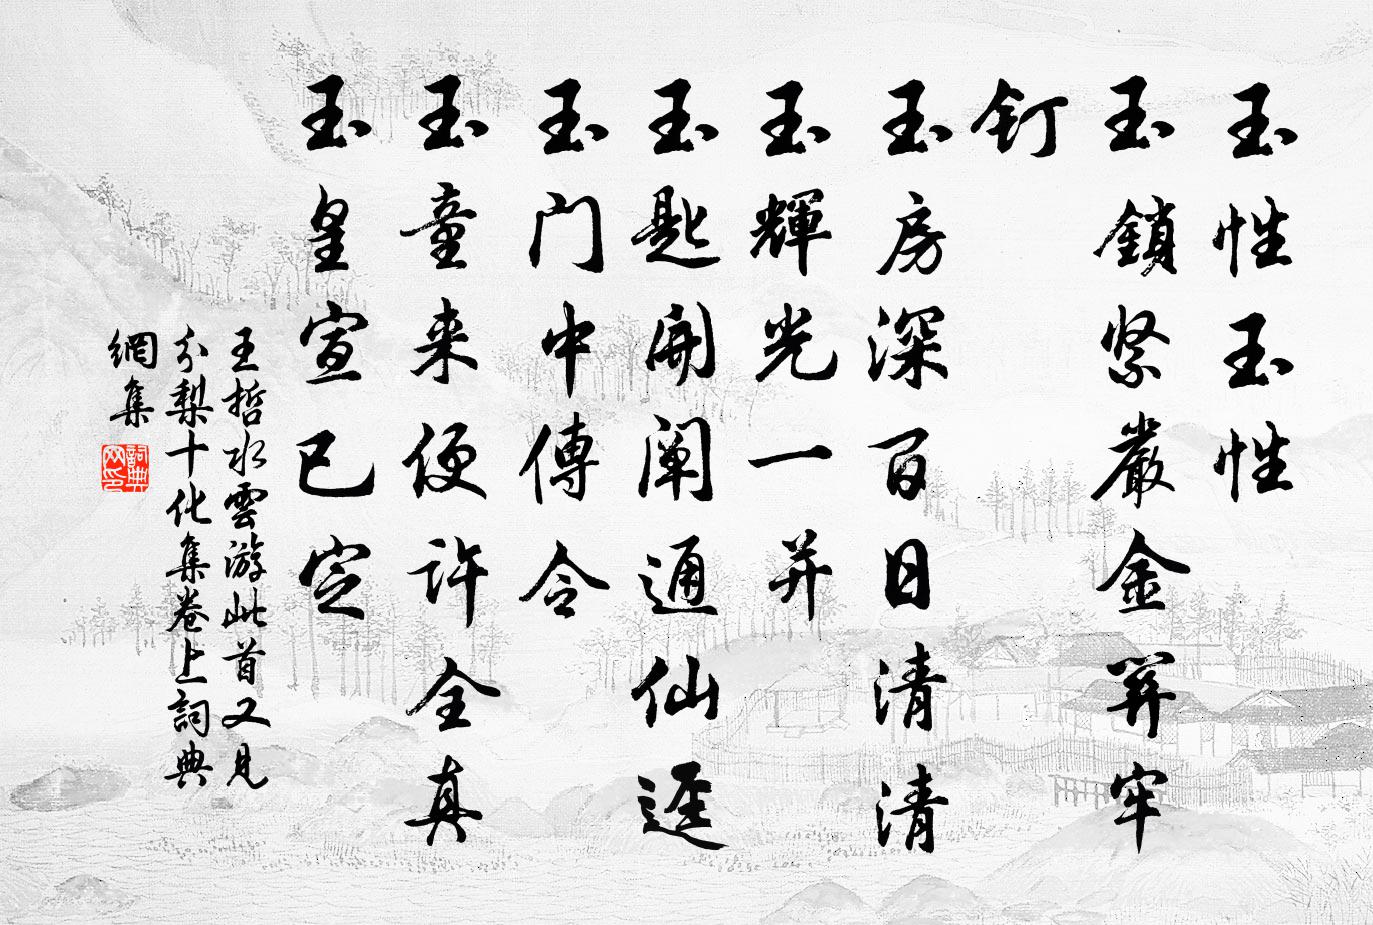 玉性玉性
玉鎖緊嚴金笄牢
釘
玉房深百日清清
玉輝光一并
玉匙開闡通仙逕
玉門中傳令
玉童来便許全真
玉皇宣已定
王哲水雲游此首又見
分梨十化集卷上詞典
網集
詞典
网印